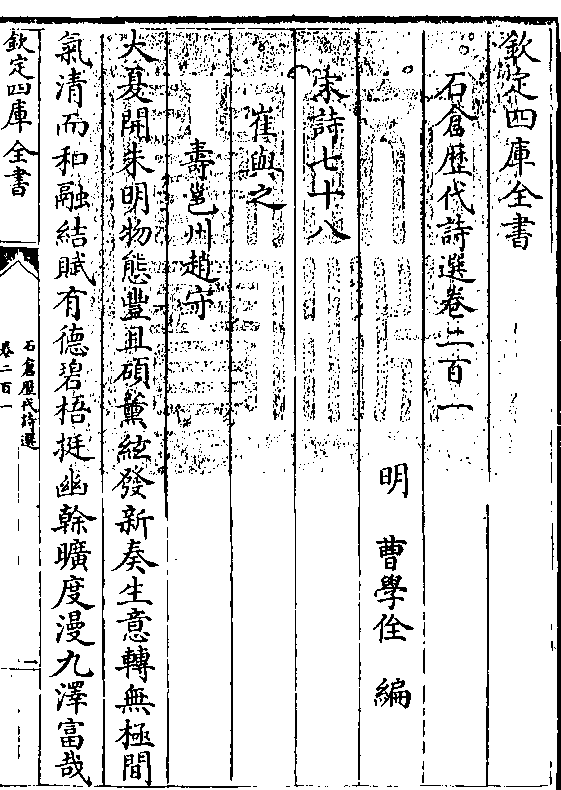 欽定四庫全書
石倉歴代詩選卷二百一
明　曹學佺　編
宋詩七十八
崔與之
壽邕州趙守
大夏開朱明物態豐且碩薰絃發新奏生意轉無極間
氣清而和融結賦有德碧梧挺幽榦曠度漫九澤富哉
欽定四庫全書
石倉歴代詩選
卷二百一
一